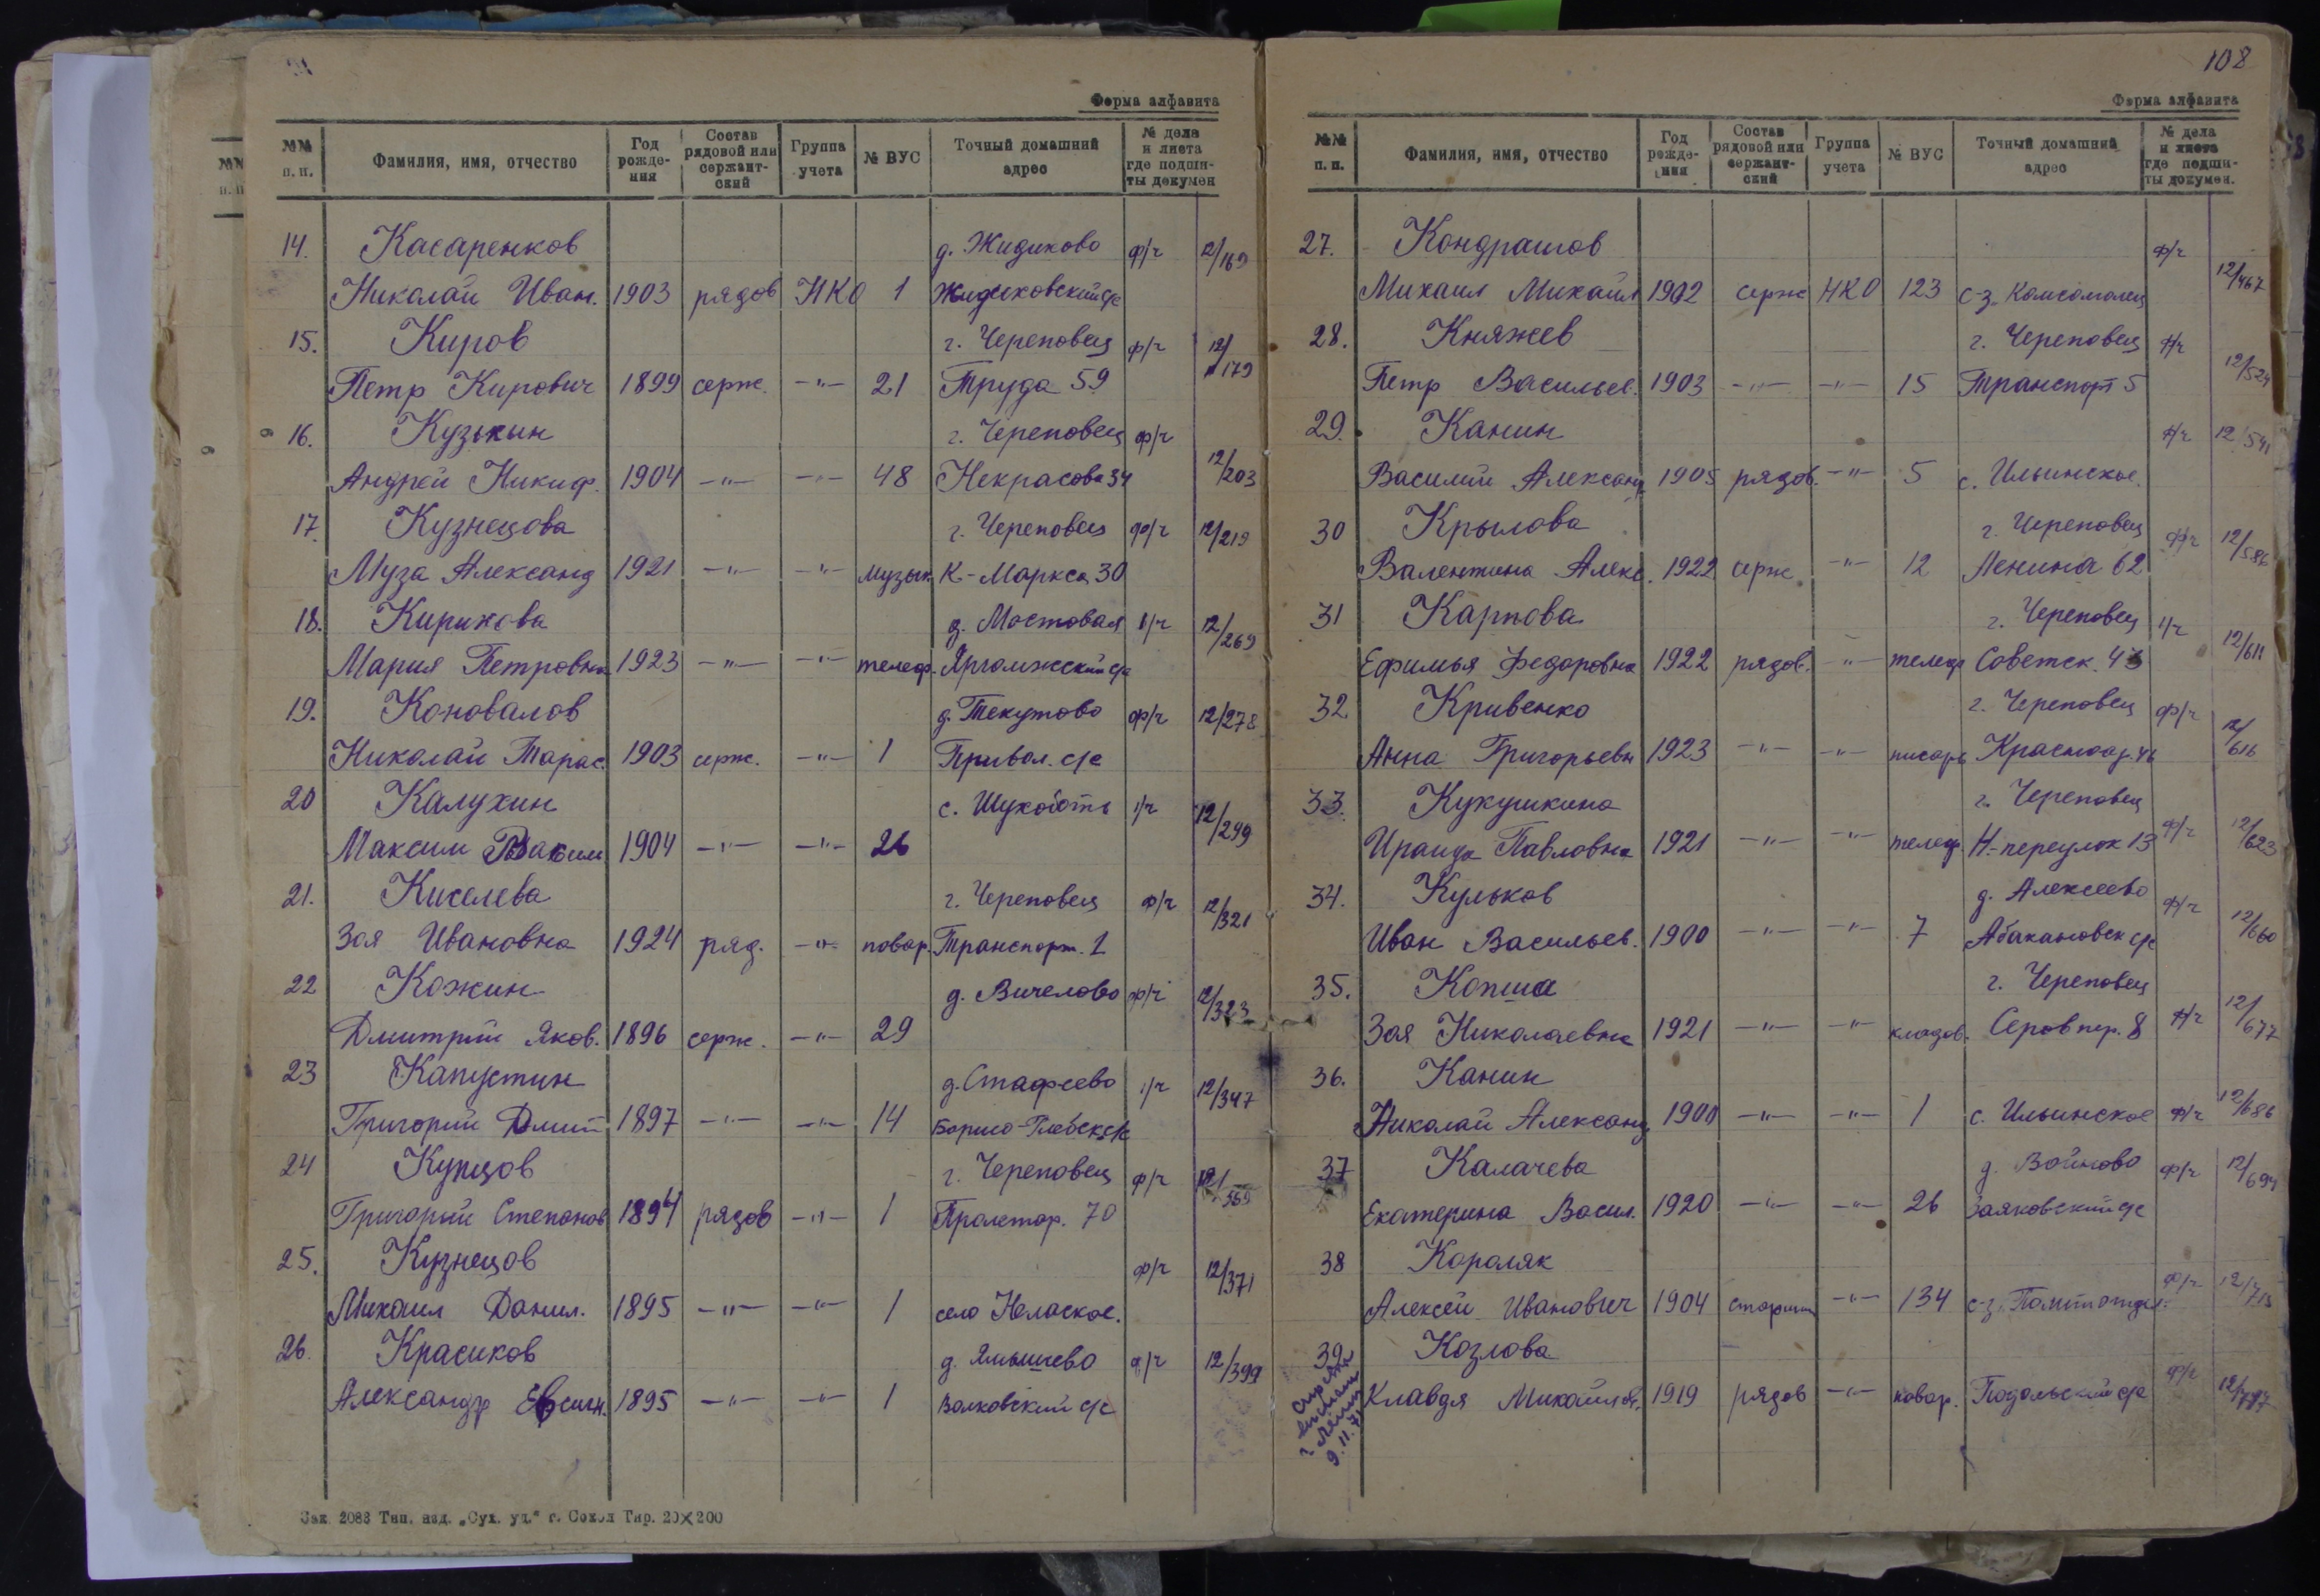 Форма алфавита
№№ п.п. Фамилия, имя, отчество Год рожде-ния Состав рядовой или сержант-ский Группа учета № ВУС Точный домашний адрес № дела и листа где подши-ты докумен
14. Касаренков д. Жидихово ф/ч 12/169
Николай Иван. 1903 рядов НКО 1 Жидиховский с/с
15. Киров г. Череповец ф/ч 12/179
Петр Кирович 1899 серж. -"- 21 Труда 59
16. Кузькин г. Череповец ф/ч
Андрей Никиф. 1904 -"- -"- 48 Некрасова 34 12/203
17. Кузнецова г. Череповец ф/ч 12/219
Муза Александ 1921 -"- -"- музык. К-Маркса 30
18. Кирикова д. Мостовая ф/ч 12/269
Мария Петровна 1923 -"- -"- телеф. Яргомжский с/с
19. Коновалов д. Текутово ф/ч 12/278
Николай Тарас. 1903 серж. -"- 1 Привол. с/с
20 Калухин с. Шухободть ф/ч 12/299
Максим Максим 1904 -"- -"- 26
21. Киселева г. Череповец ф/ч 12/321
Зоя Ивановна 1924 ряд. -"- повар. Транспорт. 1
22 Кожин д. Вичелово ф/ч 12/323
Дмитрий Яков. 1896 серж. -"- 29
23 Капустин д. Стафеево ф/ч 12/347
Григорий Дмит 1897 -"- -"- 14 Борисо-Глебск с/с
24 Купцов г. Череповец ф/ч
Григорий Степанов 1894 рядов -"- 1 Пролетар. 70
25. Кузнецов ф/ч 12/371
Михаил Данил. 1895 -"- -"- 1 село Нелаское.
26. Красиков д. Ямышево ф/ч 12/399
Александр Евсигн. 1895 -"- -"- 1 Волковский с/с
Зак. 2083 Тип. изд. „Сух. уд.“ г. Сокол Тир. 20×200
108
Форма алфавита
№№ п.п. Фамилия, имя, отчество Год рожде-ния Состав рядовой или сержант-ский Группа учета № ВУС Точный домашний адрес № дела и листа где подши-ты докумен.
27. Кондрашов ф/ч
Михаил Михайл 1902 серж НКО 123 с-з Комсомолец 12/467
28. Княжев г. Череповец ф/ч
Петр Васильев. 1903 -"- -"- 15 Транспорт 5 12/524
29. Канин ф/ч 12/541
Василий Александ 1905 рядов. -"- 5 с. Ильинское.
30 Крылова г. Череповец ф/ч 12/586
Валентина Алекс. 1922 серж. -"- 12 Ленина 62
31 Карпова г. Череповец ф/ч
Ефимья Федоровна 1922 рядов. -"- телеф Советск. 43 12/611
32 Кривенко г. Череповец ф/ч
Анна Григорьевн 1923 -"- -"- писарь Красноар. 46 12/616
33. Кукушкина г. Череповец
Ираида Павловна 1921 -"- -"- телеф. Н-переулок 13 ф/ч 12/623
34. Кульков д. Алексеево ф/ч
Иван Васильев. 1900 -"- -"- 7 Абакановск с/с 12/660
35. Копша г. Череповец
Зоя Николаевна 1921 -"- -"- кладов. Серов пер. 8 ф/ч 12/677
36. Канин
Николай Александ 1900 -"- -"- 1 с. Ильинское ф/ч 12/686
37 Калачева д. Войново ф/ч 12/694
Екатерина Васил. 1920 -"- -"- 26 Заяковский с/с
38 Короляк
Алексей Иванович 1904 старшин -"- 134 с-з. Политотдел. ф/ч 12/715
39 Козлова
Клавдя Михайлов. 1919 рядов -"- повар. Подольский с/с ф/ч
9.11.71